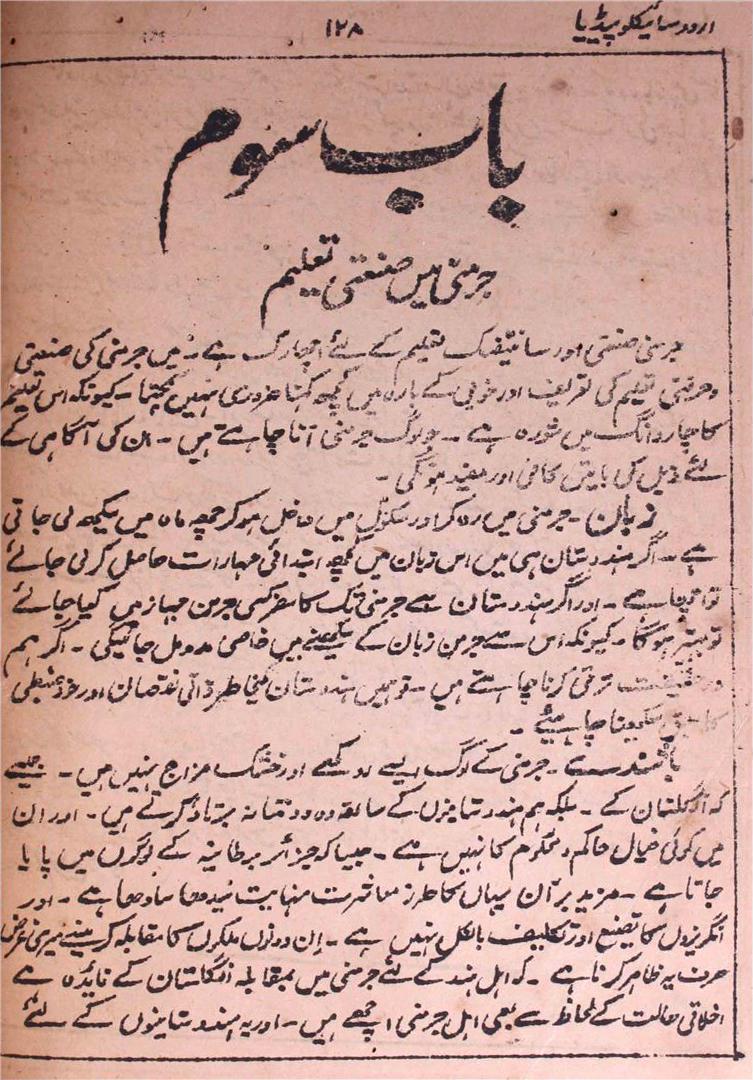 اردو سائیکلو پیڈیا
۱۲۸
باب سوم
جرمنی میں صنعتی تعلیم
جرمنی صنعتی اور سائنٹیفک تعلیم کے لئے اچھا ملک ہے۔ میں جرمنی کی صنعتی
وحرفتی تعلیم کی تعریف اور خوبی کے بارہ میں کچھ کہنا ضروری نہیں سمجھتا۔ کیونکہ اس تعلیم
کا چار دانگ میں شورہ ہے۔ جو لوگ جرمنی آنا چاہتے ہیں۔ ان کی آگاہی کے
لئے ذیل کی باتیں کافی اور مفید ہونگی۔
زبان۔ جرمنی میں رہ کر اور سکول میں داخل ہو کر چھ ماہ میں سیکھ لی جاتی
ہے۔ اگر ہندوستان ہی میں اس زبان میں کچھ ابتدائی مہارات حاصل کر لی جائے
تو اچھا ہے۔ اور اگر ہندوستان سے جرمنی تک کا سفر کسی جرمن جہاز میں کیا جائے
تو بہتر ہوگا۔ کیونکہ اس سے جرمن زبان کے سیکھنے میں خاصی مدد مل جائیگی۔ اگر ہم
درحقیقت ترقی کرنا چاہتے ہیں۔ تو ہمیں ہندوستان کی خاطر ذاتی نقصان اور خود ضبطی
کا سبق سیکھنا چاہیئے۔
باشندے۔ جرمنی کے لوگ ایسے روکھے اور خشک مزاج نہیں ہیں۔ جیسے
کہ انگلستان کے۔ بلکہ ہم ہندوستانیوں کے ساتھ وہ دوستانہ برتاؤ کرتے ہیں۔ اور ان
میں کوئی خیال حاکم ومحکوم کا نہیں ہے۔ جیسا کہ جزائر برطانیہ کے لوگوں میں پایا
جاتا ہے۔ مزید برآن یہاں کا طرز معاشرت نہایت سیدھا سادھا ہے۔ اور
انگریزوں کا تصنع اور تکلیف بالکل نہیں ہے۔ ان دونوں ملکوں کا مقابلہ کرنیسے میری غرض
صرف یہ ظاہر کرنا ہے۔ کہ اہل ہند کے لئے جرمنی میں بمقابلہ انگلستان کے فائدہ ہے
اخلاقی حالت کے لحاظ سے بھی اہل جرمنی اچھے ہیں۔ اور یہ ہندوستانیوں کے لئے